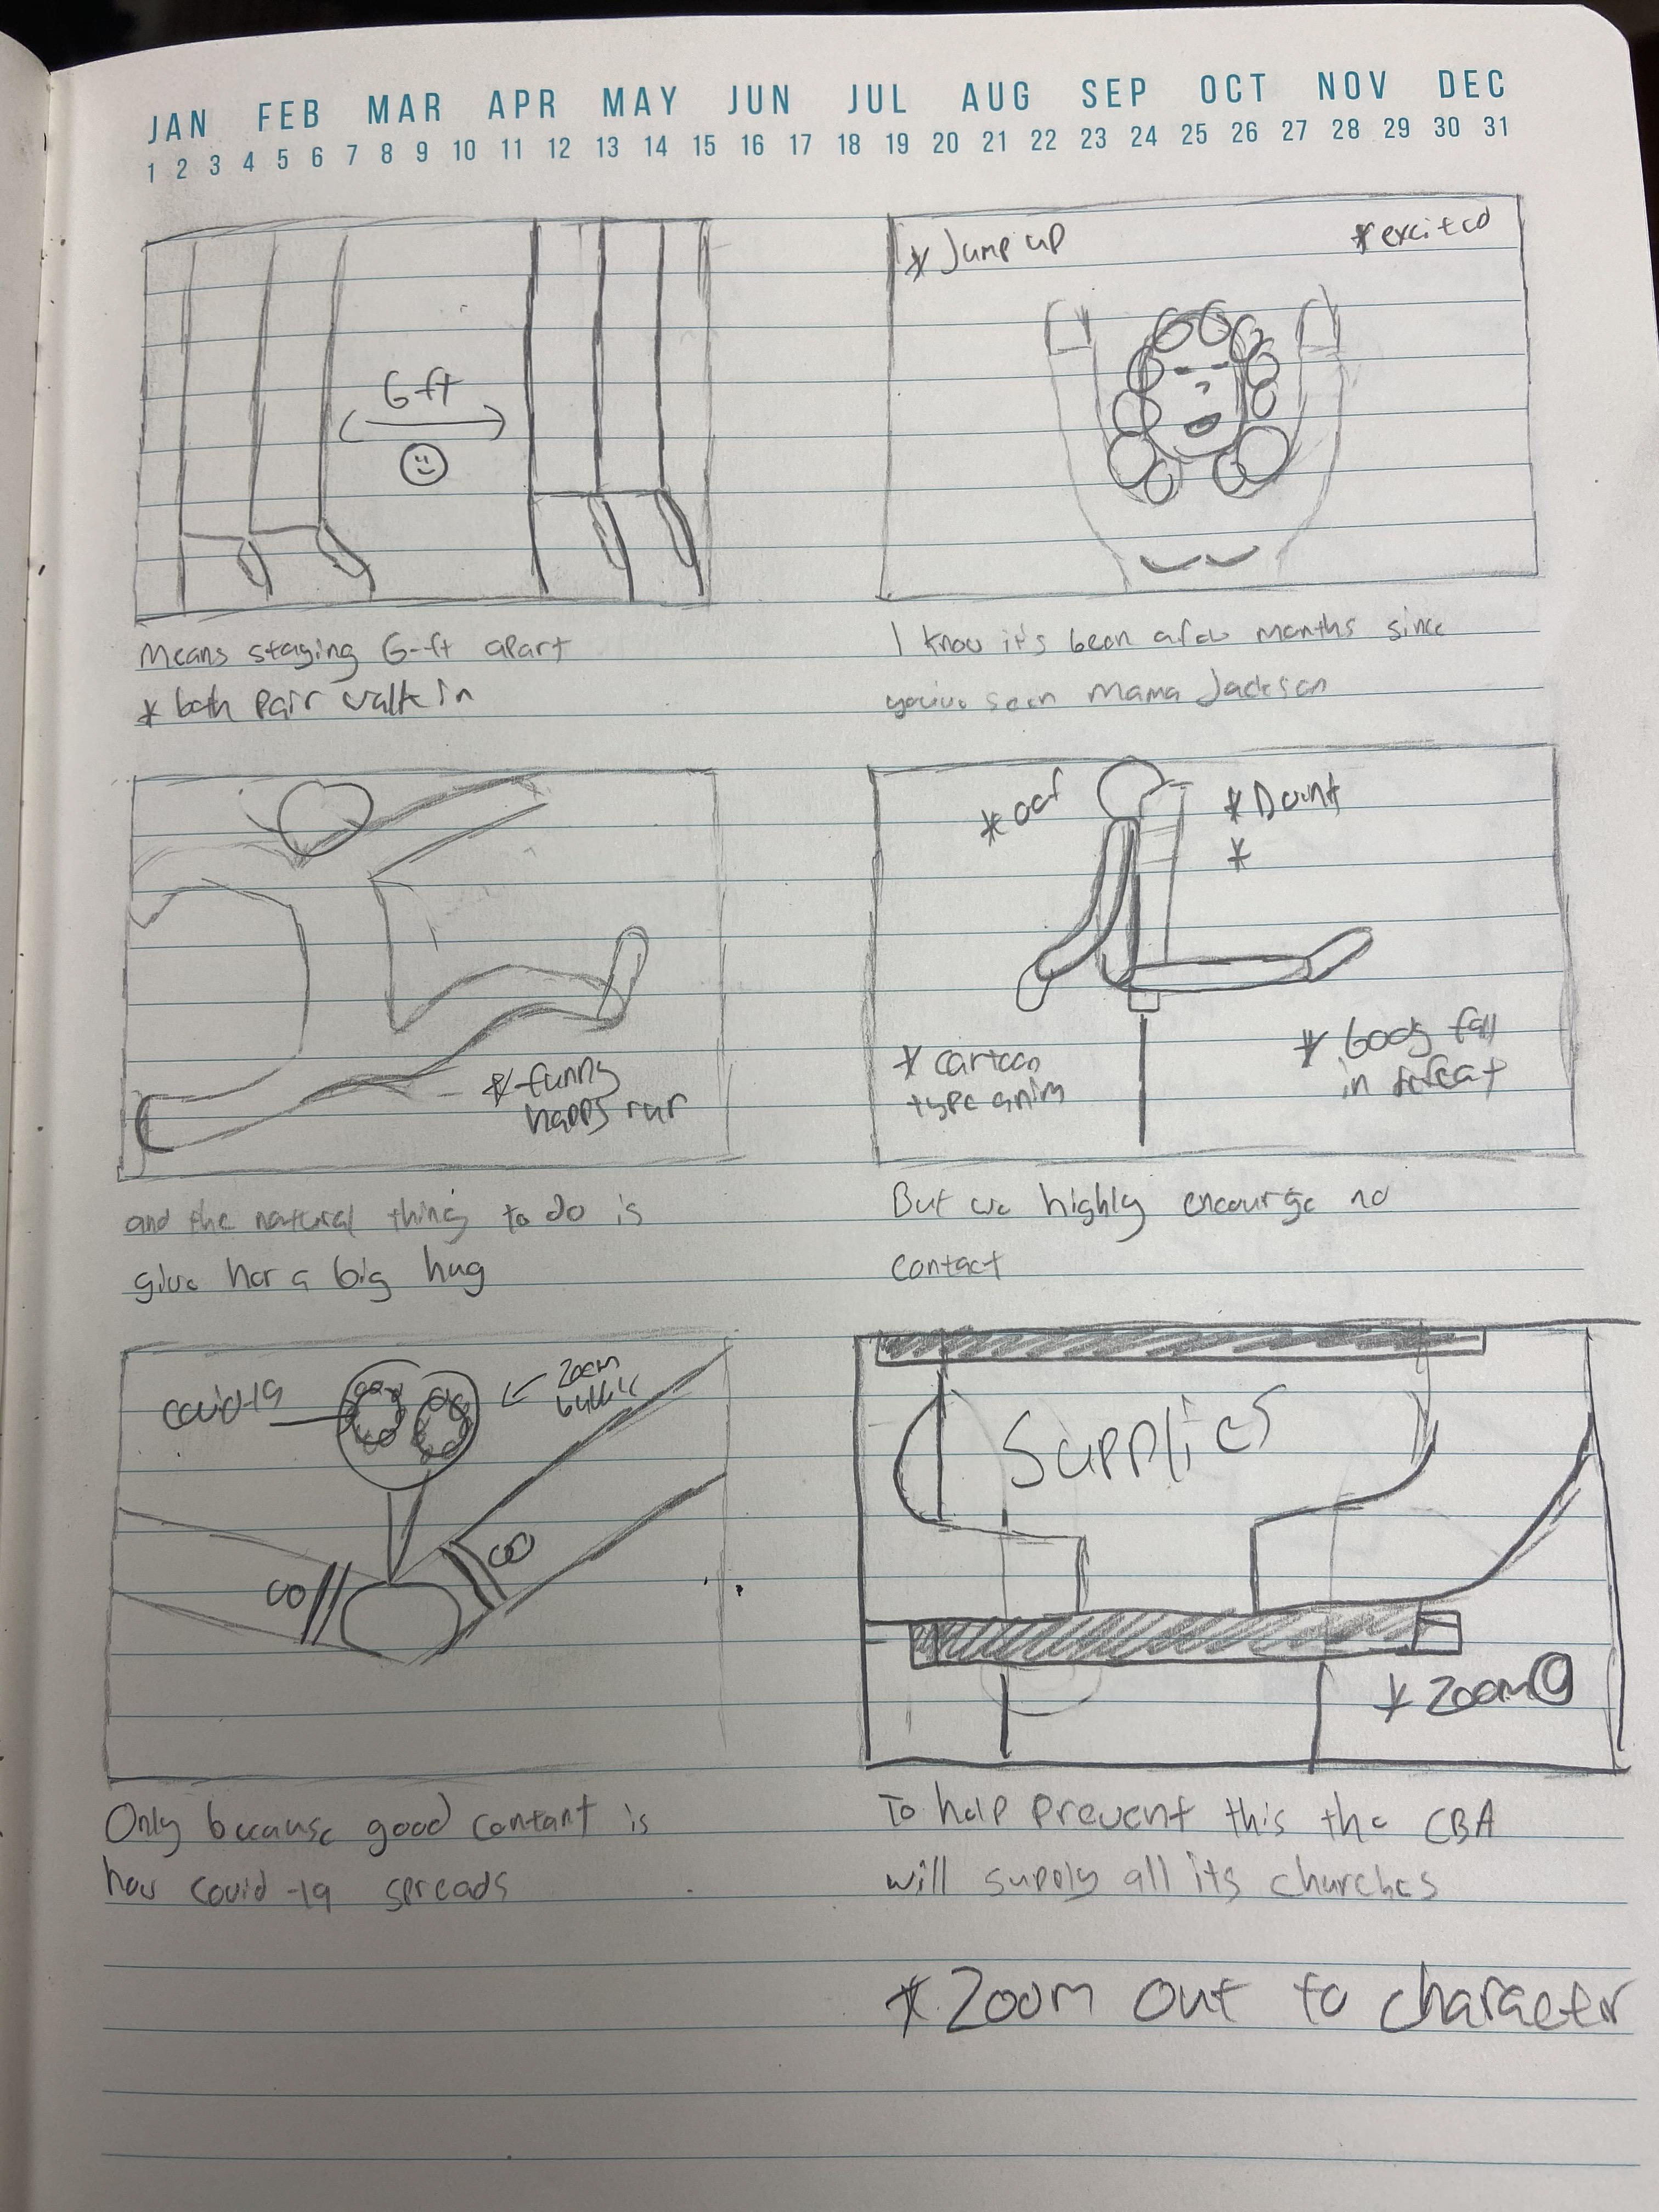 JAN FEB MAR APR MAY JUN JUL AUG SEP OCT NOV DEC
1 2 3 4 5 6 7 8 9 10 11 12 13 14 15 16 17 18 19 20 21 22 23 24 25 26 27 28 29 30 31
6ft
Means staying 6-ft apart
* both pair walk in
* Jump up
* excited
I know it's been a few months since
you've seen Mama Jackson
* funny
happy run
and the natural thing to do is
give her a big hug
* oof
*
* cartoon
type anim
* body fall
in defeat
But we highly encourge no
contact
covid-19
zoom
Only because good contant is
how covid-19 spreads
Supplies
* zoom
To help prevent this the CBA
will supply all its churches
* Zoom out to character